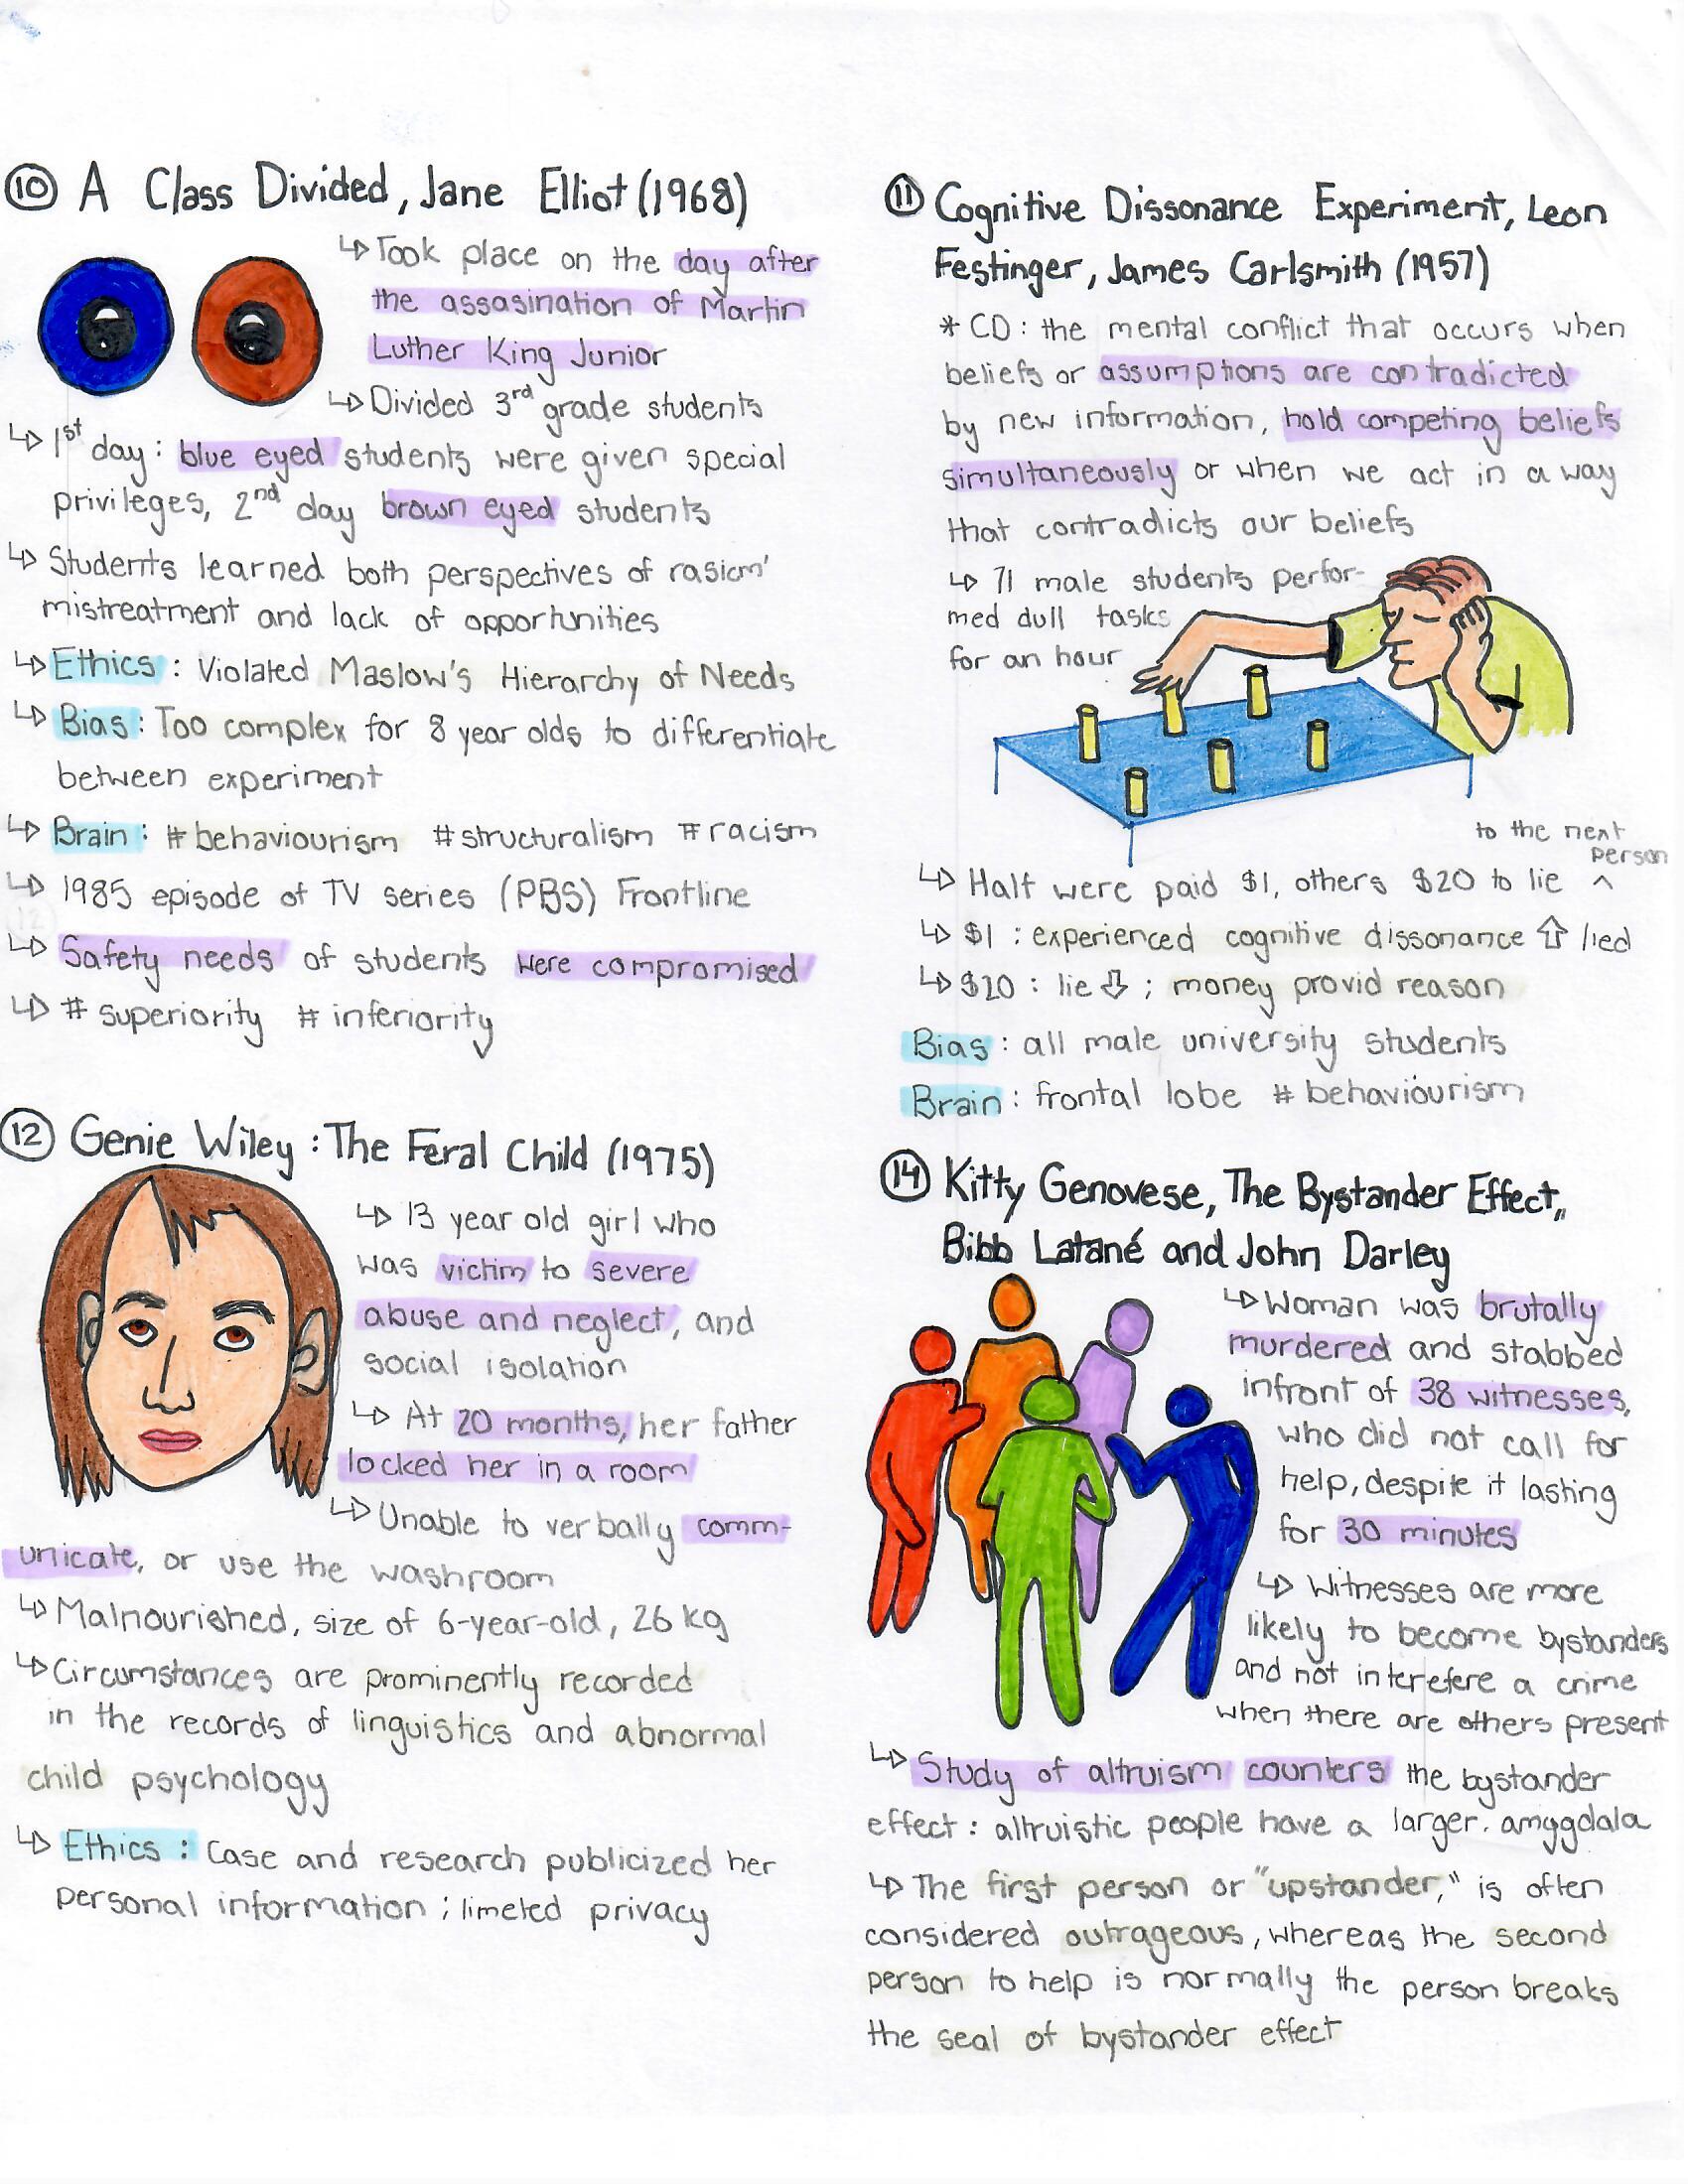 ⑩ A Class Divided, Jane Elliot (1968)
↳ Took place on the day after
the assasination of Martin
Luther King Junior
↳ Divided 3rd grade students
↳ 1st day: blue eyed students were given special
privileges, 2nd day brown eyed students
↳ Students learned both perspectives of rasicm'
mistreatment and lack of opportunities
↳ Ethics: Violated Maslow's Hierarchy of Needs
↳ Bias: Too complex for 8 year olds to differentiate
between experiment
↳ Brain: #behaviourism #structuralism #racism
↳ 1985 episode of TV series (PBS) Frontline
↳ Safety needs of students were compromised
↳ # superiority # inferiority
⑫ Genie Wiley: The Feral Child (1975)
↳ 13 year old girl who
was victim to severe
abuse and neglect, and
social isolation
↳ At 20 months, her father
locked her in a room
↳ Unable to verbally comm-
unicate, or use the washroom
↳ Malnourished, size of 6-year-old, 26 kg
↳ Circumstances are prominently recorded
in the records of linguistics and abnormal
child psychology
↳ Ethics: Case and research publicized her
personal information; limeted privacy
⑪ Cognitive Dissonance Experiment, Leon
Festinger, James Carlsmith (1957)
* CD: the mental conflict that occurs when
beliefs or assumptions are contradicted
by new information, hold competing beliefs
simultaneously or when we act in a way
that contradicts our beliefs
↳ 71 male students perfor-
med dull tasks
for an hour
to the next
person
↳ Half were paid $1, others $20 to lie ^
↳ $1: experienced cognitive dissonance ⇧ lied
↳ $20: lie ⇩; money provid reason
Bias: all male university students
Brain: frontal lobe # behaviourism
⑭ Kitty Genovese, The Bystander Effect,,
Bibb Latané and John Darley
↳ Woman was brutally
murdered and stabbed
infront of 38 witnesses,
who did not call for
help, despite it lasting
for 30 minutes
↳ Witnesses are more
likely to become bystanders
and not interefere a crime
when there are others present
↳ Study of altruism counters the bystander
effect: altruistic people have a larger. amygdala
↳ The first person or "upstander," is often
considered outrageous, whereas the second
person to help is normally the person breaks
the seal of bystander effect